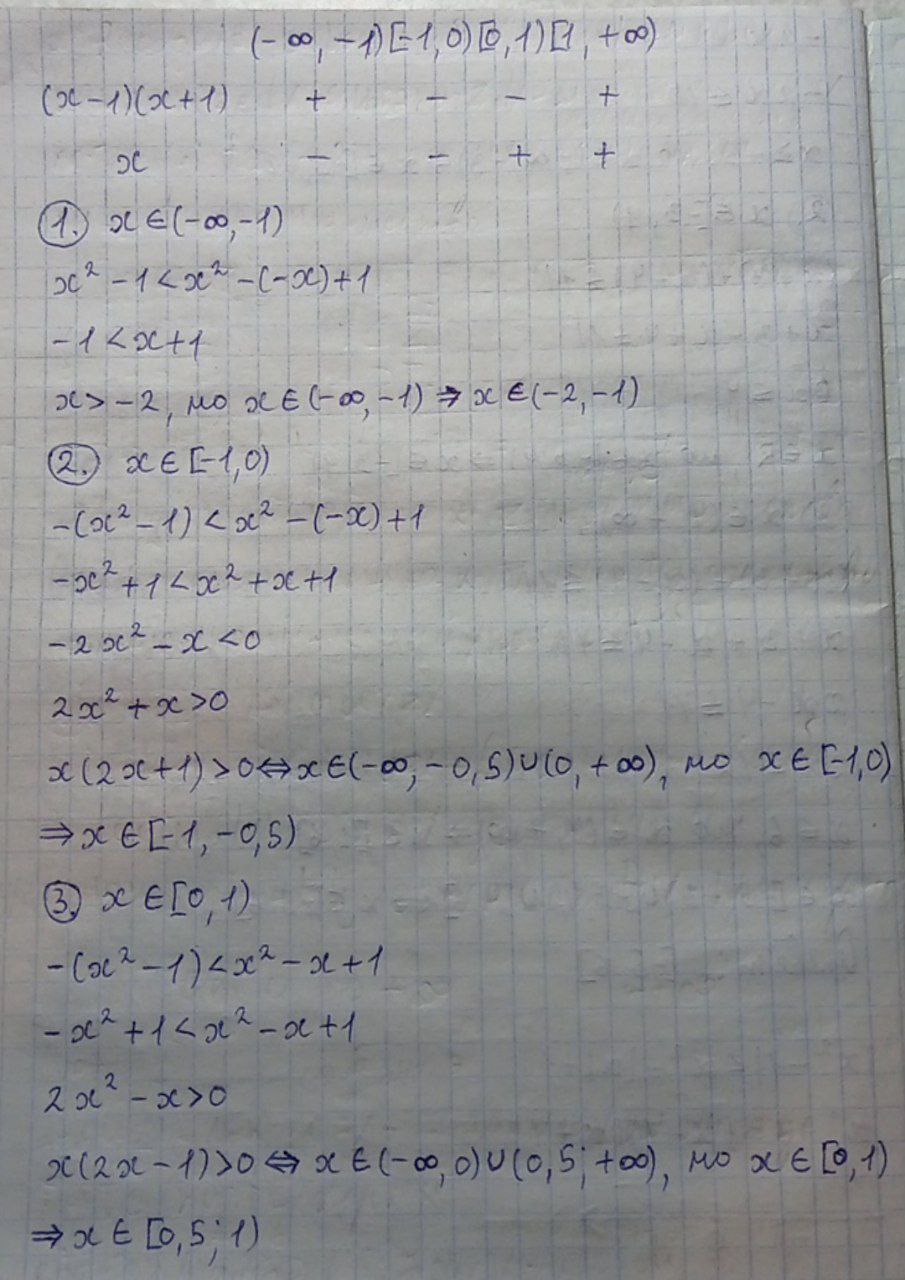 (-∞, -1)[-1, 0)[0, 1)[1, +∞)
(x-1)(x+1) + - - +
x - - + +
1. x∈(-∞,-1)
x² - 1 < x² - (-x) + 1
-1 < x+1
x > -2, но x∈(-∞,-1) ⇒ x∈(-2,-1)
2. x∈[-1,0)
-(x²-1) < x² - (-x) + 1
-x² + 1 < x² + x + 1
-2x² - x < 0
2x² + x > 0
x(2x+1) > 0 ⇔ x∈(-∞; -0,5)∪(0, +∞), но x∈[-1,0)
⇒ x∈[-1, -0,5)
3. x∈[0,1)
-(x²-1) < x² - x + 1
-x² + 1 < x² - x + 1
2x² - x > 0
x(2x-1) > 0 ⇔ x∈(-∞,0)∪(0,5; +∞), но x∈[0,1)
⇒ x∈[0,5; 1)